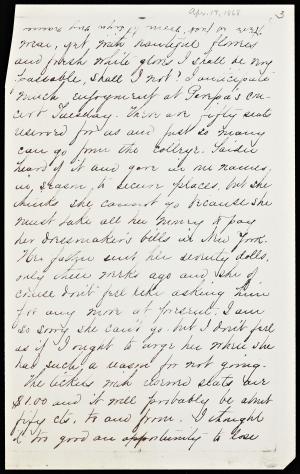 Apr. 19, 1868
3
wear, yet, with beautiful flowers
and fresh white glove I shall be very
passable, shall I not? I anticipate
much enjoyment at Parepa's con-
cert Tuesday. There are fifty seats
reserved for us and just so many
can go from the college.
heard of it and gave in our names,
in season to secure places, but she
thinks she cannot go because she
must take all her money to pay
her dressmaker's bills in New York.
Her father sent her seventy dolls.
only three weeks ago and she of
course don't feel like asking him
for any more at present. I am
so sorry she can't go. but I don't feel
as if I ought to urge her where she
has such a reason for not going.
The tickets with reserved seats are
$1.00 and it will probably be about
fifty cts. to and from. I thought
it too good an opportunity to lose